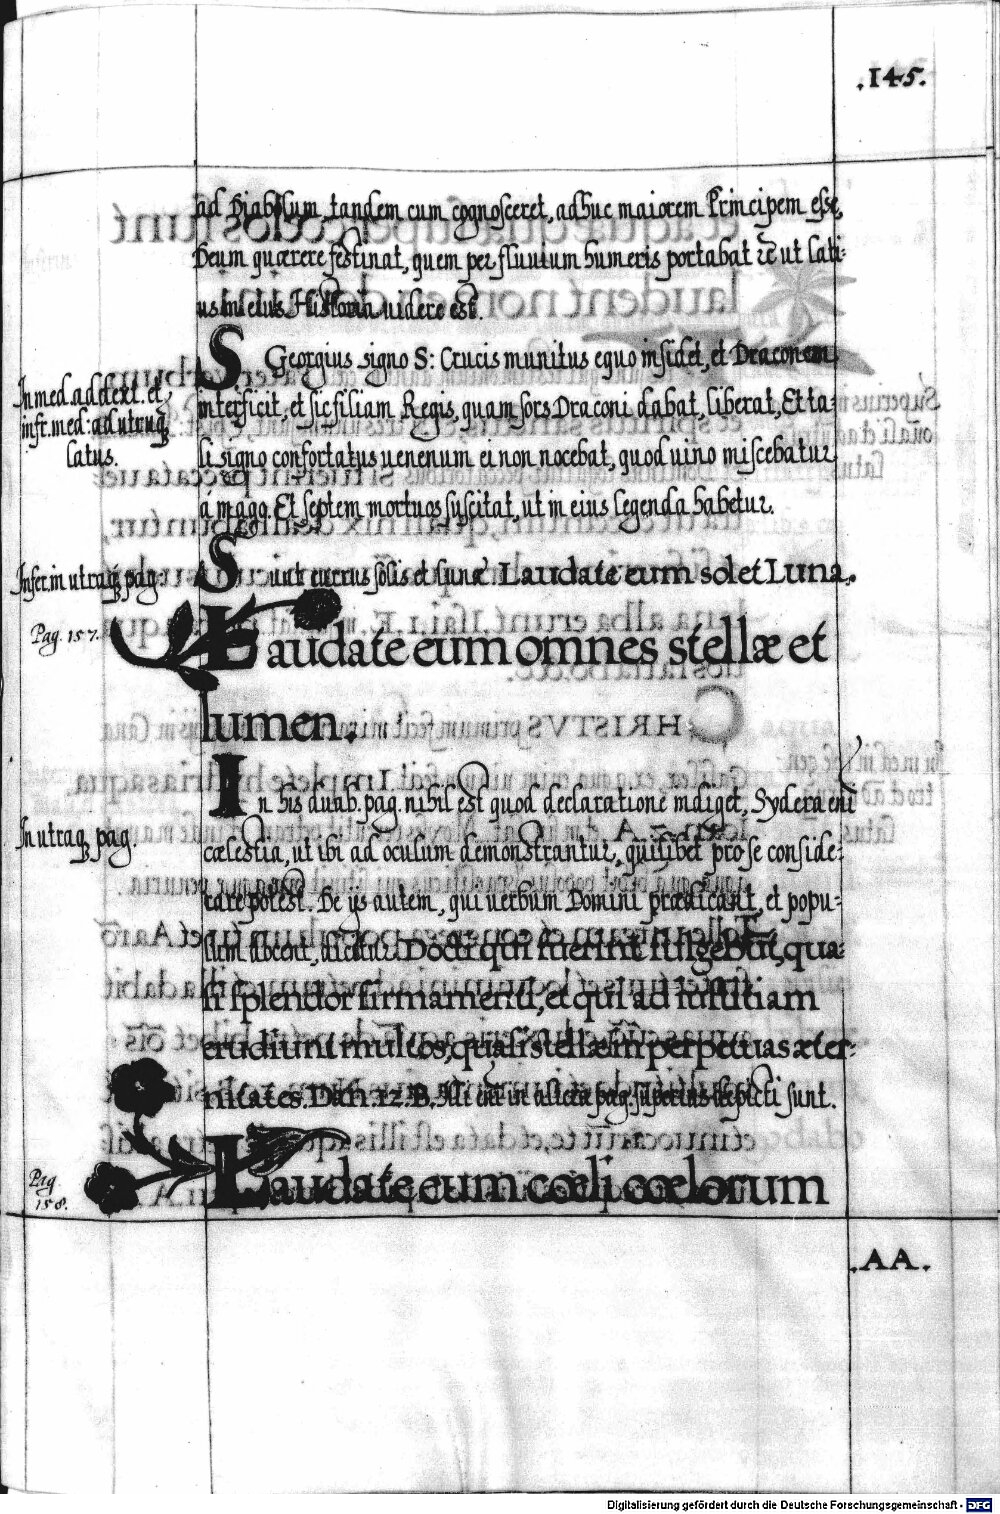 .145.
ad Diabolum, tandem cum cognosceret, adhuc maiorem Principem esse,
Deum quærere festinat, quem per fluuium humeris portabat &c ut lati-
us in eius Historia uidere est.
In med. ad dext. et
infr. med: ad utrunq
latus.
S Georgius signo S: Crucis munitus equo insidet, et Draconem
interficit, et sic filiam Regis, quam sors Draconi dabat, liberat, Et ta-
li signo confortatus uenenum ei non nocebat, quod uino miscebatur
á mago. Et septem mortuos suscitat, ut in eius legenda habetur.
Infer. in utraq pag:
Sunt currus solis et lunæ Laudate eum sol et Luna.
Pag. 157.
Laudate eum omnes stellæ et
lumen.
In utraq pag.
In his duab. pag. nihil est quod declaratione indiget, Sydera eni
cælestia, ut ibi ad oculum demonstrantur, quilibet pro se conside-
rare potest. De ijs autem, qui uerbum Domini prædicant, et popu-
lum docent, dicitur Docti qui fuerint fulgebut, qua-
si splendor firmamenti, et qui ad iustitiam
erudiunt multos, quasi stellæ in perpetuas æter-
nitates. Dan. 12. B. Illi eni in altera pag. superius depicti sunt.
Pag.
158.
Laudate eum cœli cœlorum
.AA.
Digitalisierung gefördert durch die Deutsche Forschungsgemeinschaft - DFG